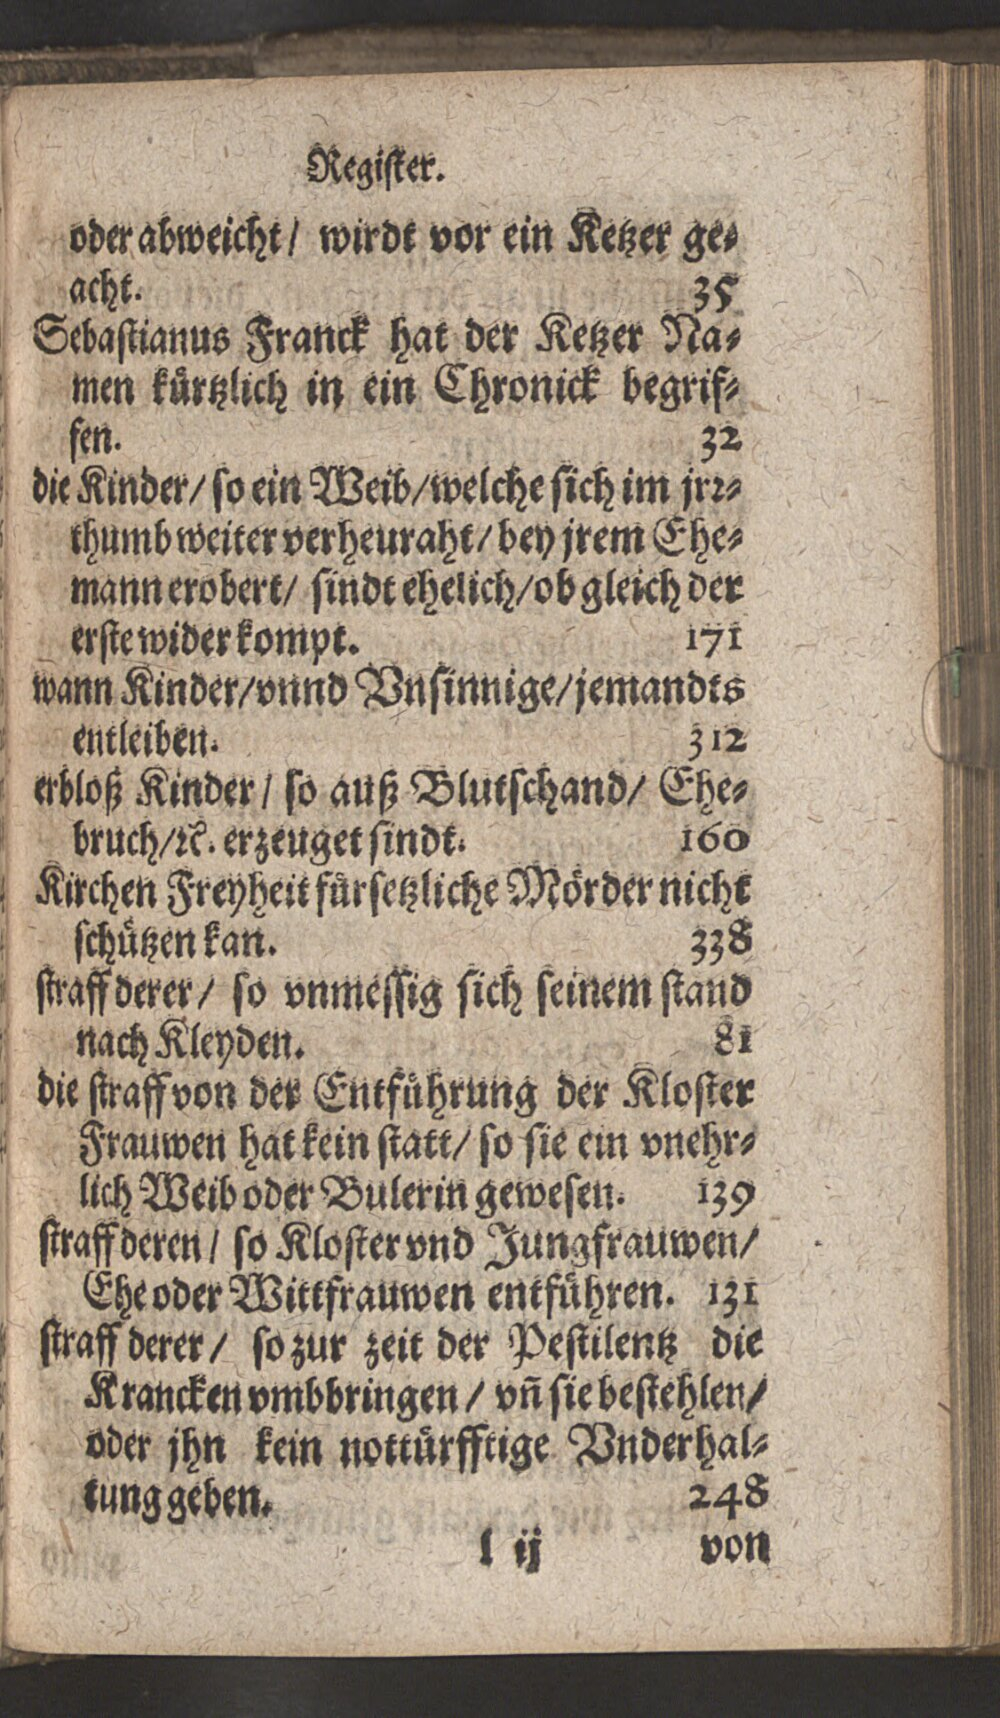 Register.
oder abweicht / wirdt vor ein Ketzer ge⸗
acht. 35
Sebastianus Franck hat der Ketzer Na⸗
men kuͤrtzlich in ein Chronick begrif⸗
fen. 32
die Kinder / so ein Weib / welche sich im jrꝛ⸗
thumb weiter verheuraht / bey jrem Ehe⸗
mann erobert / sindt ehelich / ob gleich der
erste wider kompt. 171
wann Kinder / vnnd Vnsinnige / jemandts
entleiben. 312
erbloß Kinder / so auß Blutschand / Ehe⸗
bruch / ꝛc. erzeuget sindt. 160
Kirchen Freyheit fuͤrsetzliche Moͤrder nicht
schuͤtzen kan. 338
straff derer / so vnmessig sich seinem stand
nach Kleyden. 81
die straff von der Entfuͤhrung der Kloster
Frauwen hat kein statt / so sie ein vnehr⸗
lich Weib oder Bulerin gewesen. 139
straff deren / so Kloster vnd Jungfrauwen /
Ehe oder Wittfrauwen entfuͤhren. 131
straff derer / so zur zeit der Pestilentz die
Krancken vmbbringen / vñ sie bestehlen /
oder jhn kein nottuͤrfftige Vnderhal⸗
tung geben. 248
l ij von